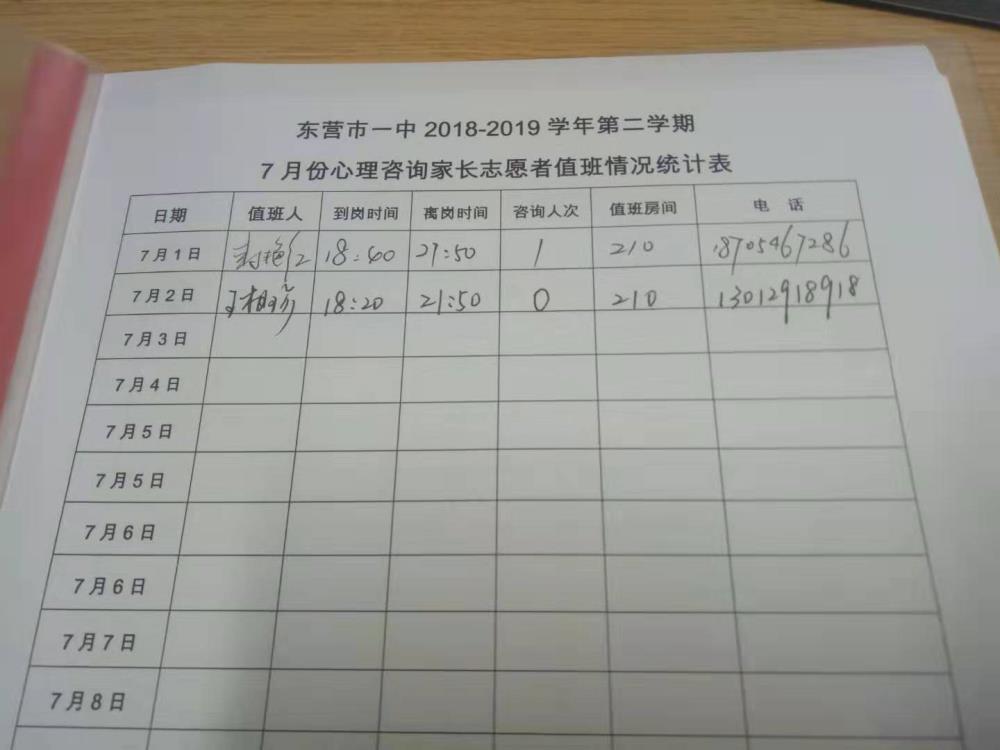 东营市一中 2018-2019 学年第二学期
7 月份心理咨询家长志愿者值班情况统计表
日期 值班人 到岗时间 离岗时间 咨询人次 值班房间 电 话
7月1日 18:40 21:50 1 210 18705467286
7月2日 18:20 21:50 0 210 13012918918
7月3日
7月4日
7月5日
7月5日
7月6日
7月6日
7月7日
7月8日